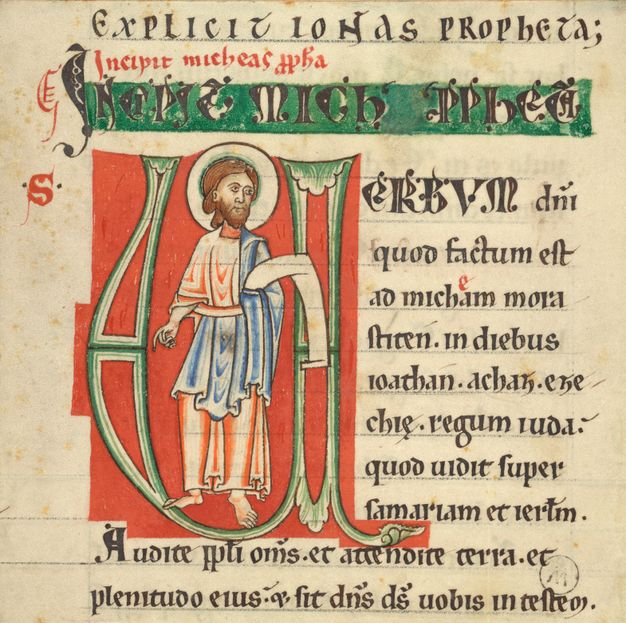 EXPLICIT IONAS PROPHETA;
Incipit micheas ꝓpha
INCIPIT MICH PPHETA
S.
UERBVM dn̄i
quod factum est
ad micheam mora
stiten. in diebus
ioathan. achaz. eze
chię. regum iuda.
quod uidit super
samariam et ierłm.
Audite ppłi om̄s. et attendite terra. et
plenitudo eius. & sit dn̄s ds̄ uobis in testem.